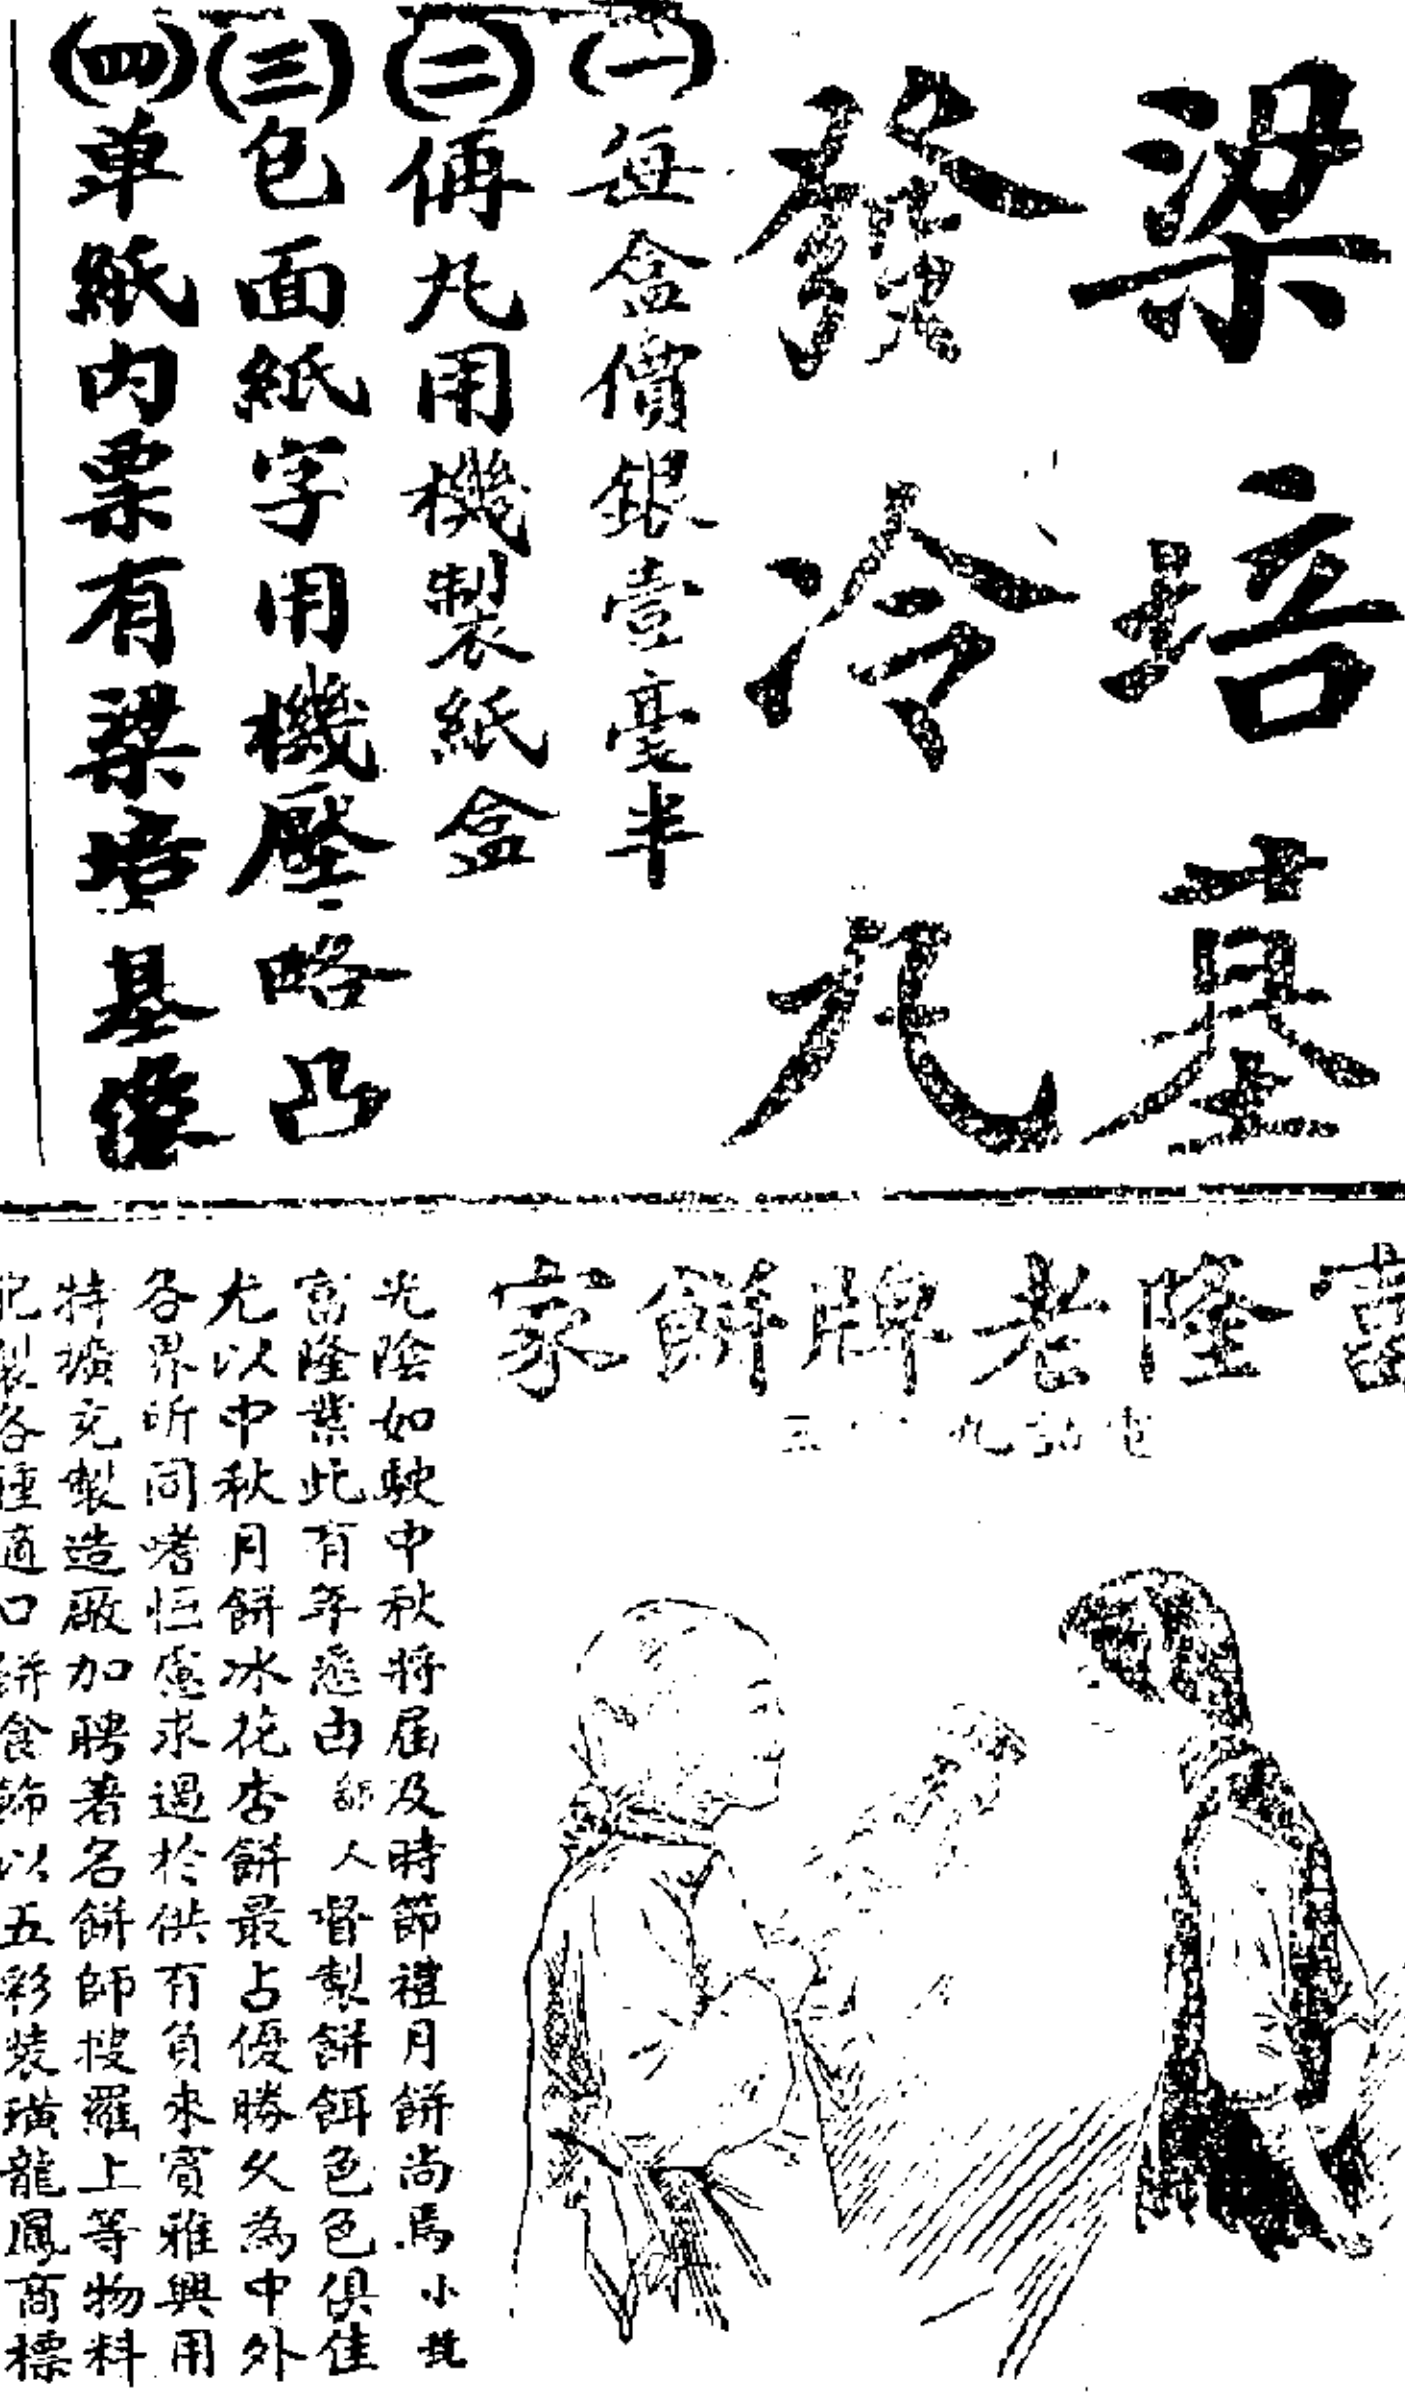 梁培基
發冷丸
(一)每盒價銀壹毫半
(二)俩丸用機製紙盒
(三)包面紙字用機壓略凸
(四)单紙内票有梁培基像
富隆老牌餅家
光陰如駛中秋將屆及時節禮月餅尚焉小號
富隆業此有年悉由 人督製餅餌色色俱佳
尤以中秋月餅冰花杏餅最占優勝久為中外
各界所同嗜恒慮求過於供有負來賓雅興用
特擴充製造厰加聘著名餅師搜羅上等物料
配製各種適口餅食飾以五彩裝璜龍鳳商標